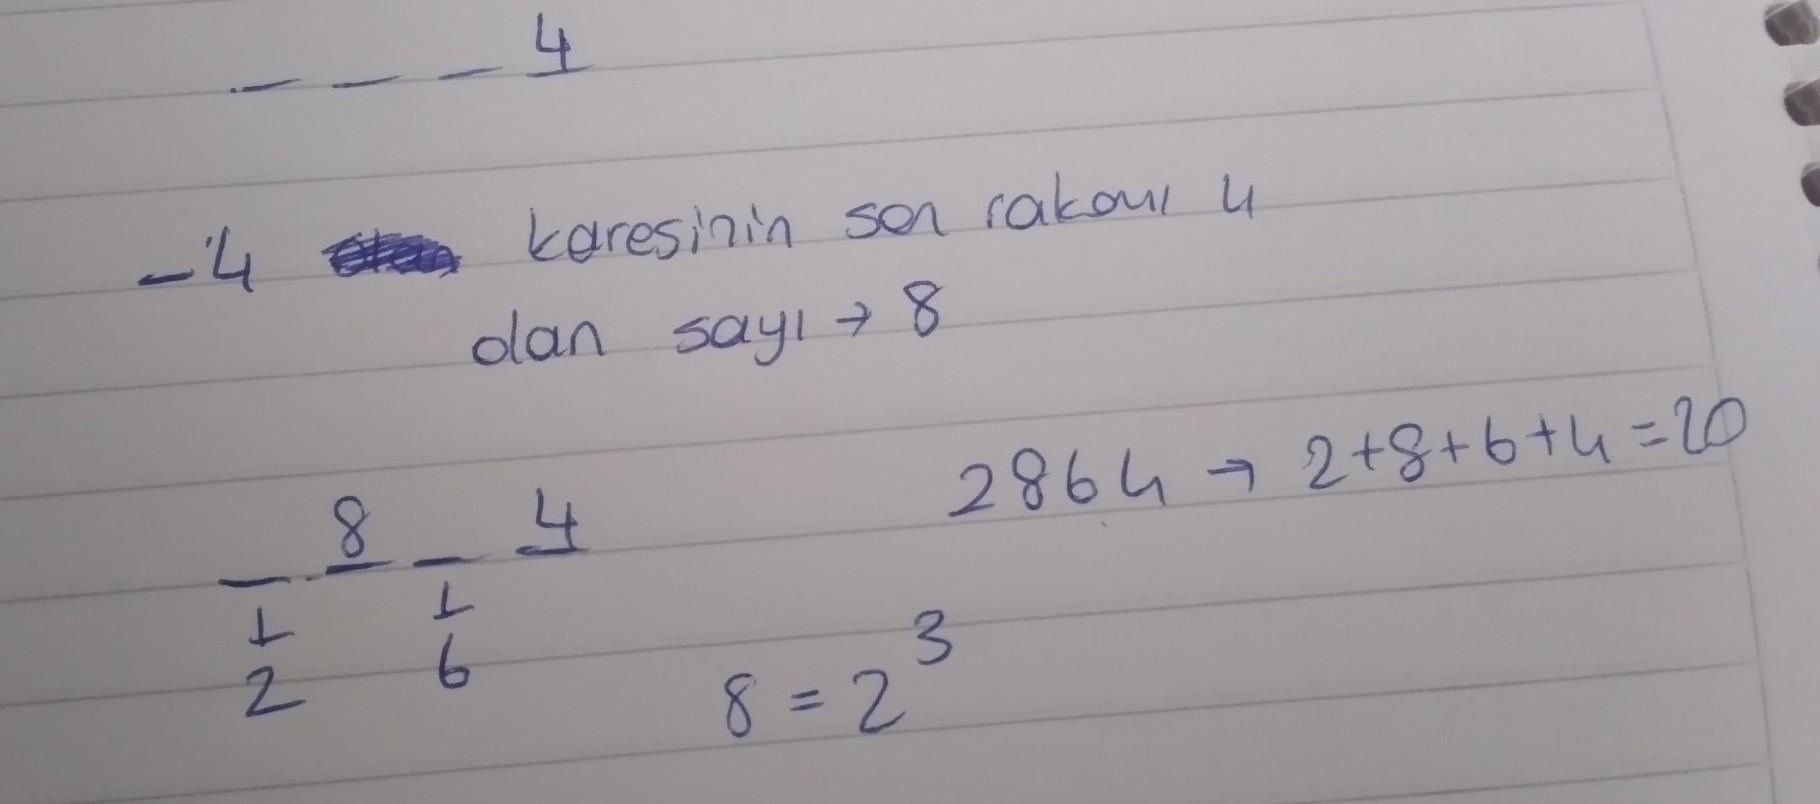 _ _ _ 4
-4 karesinin son rakamı 4
olan sayı → 8
2864 → 2+8+6+4=20
_ 8 _ 4
1 1
2 6
8 = 2³